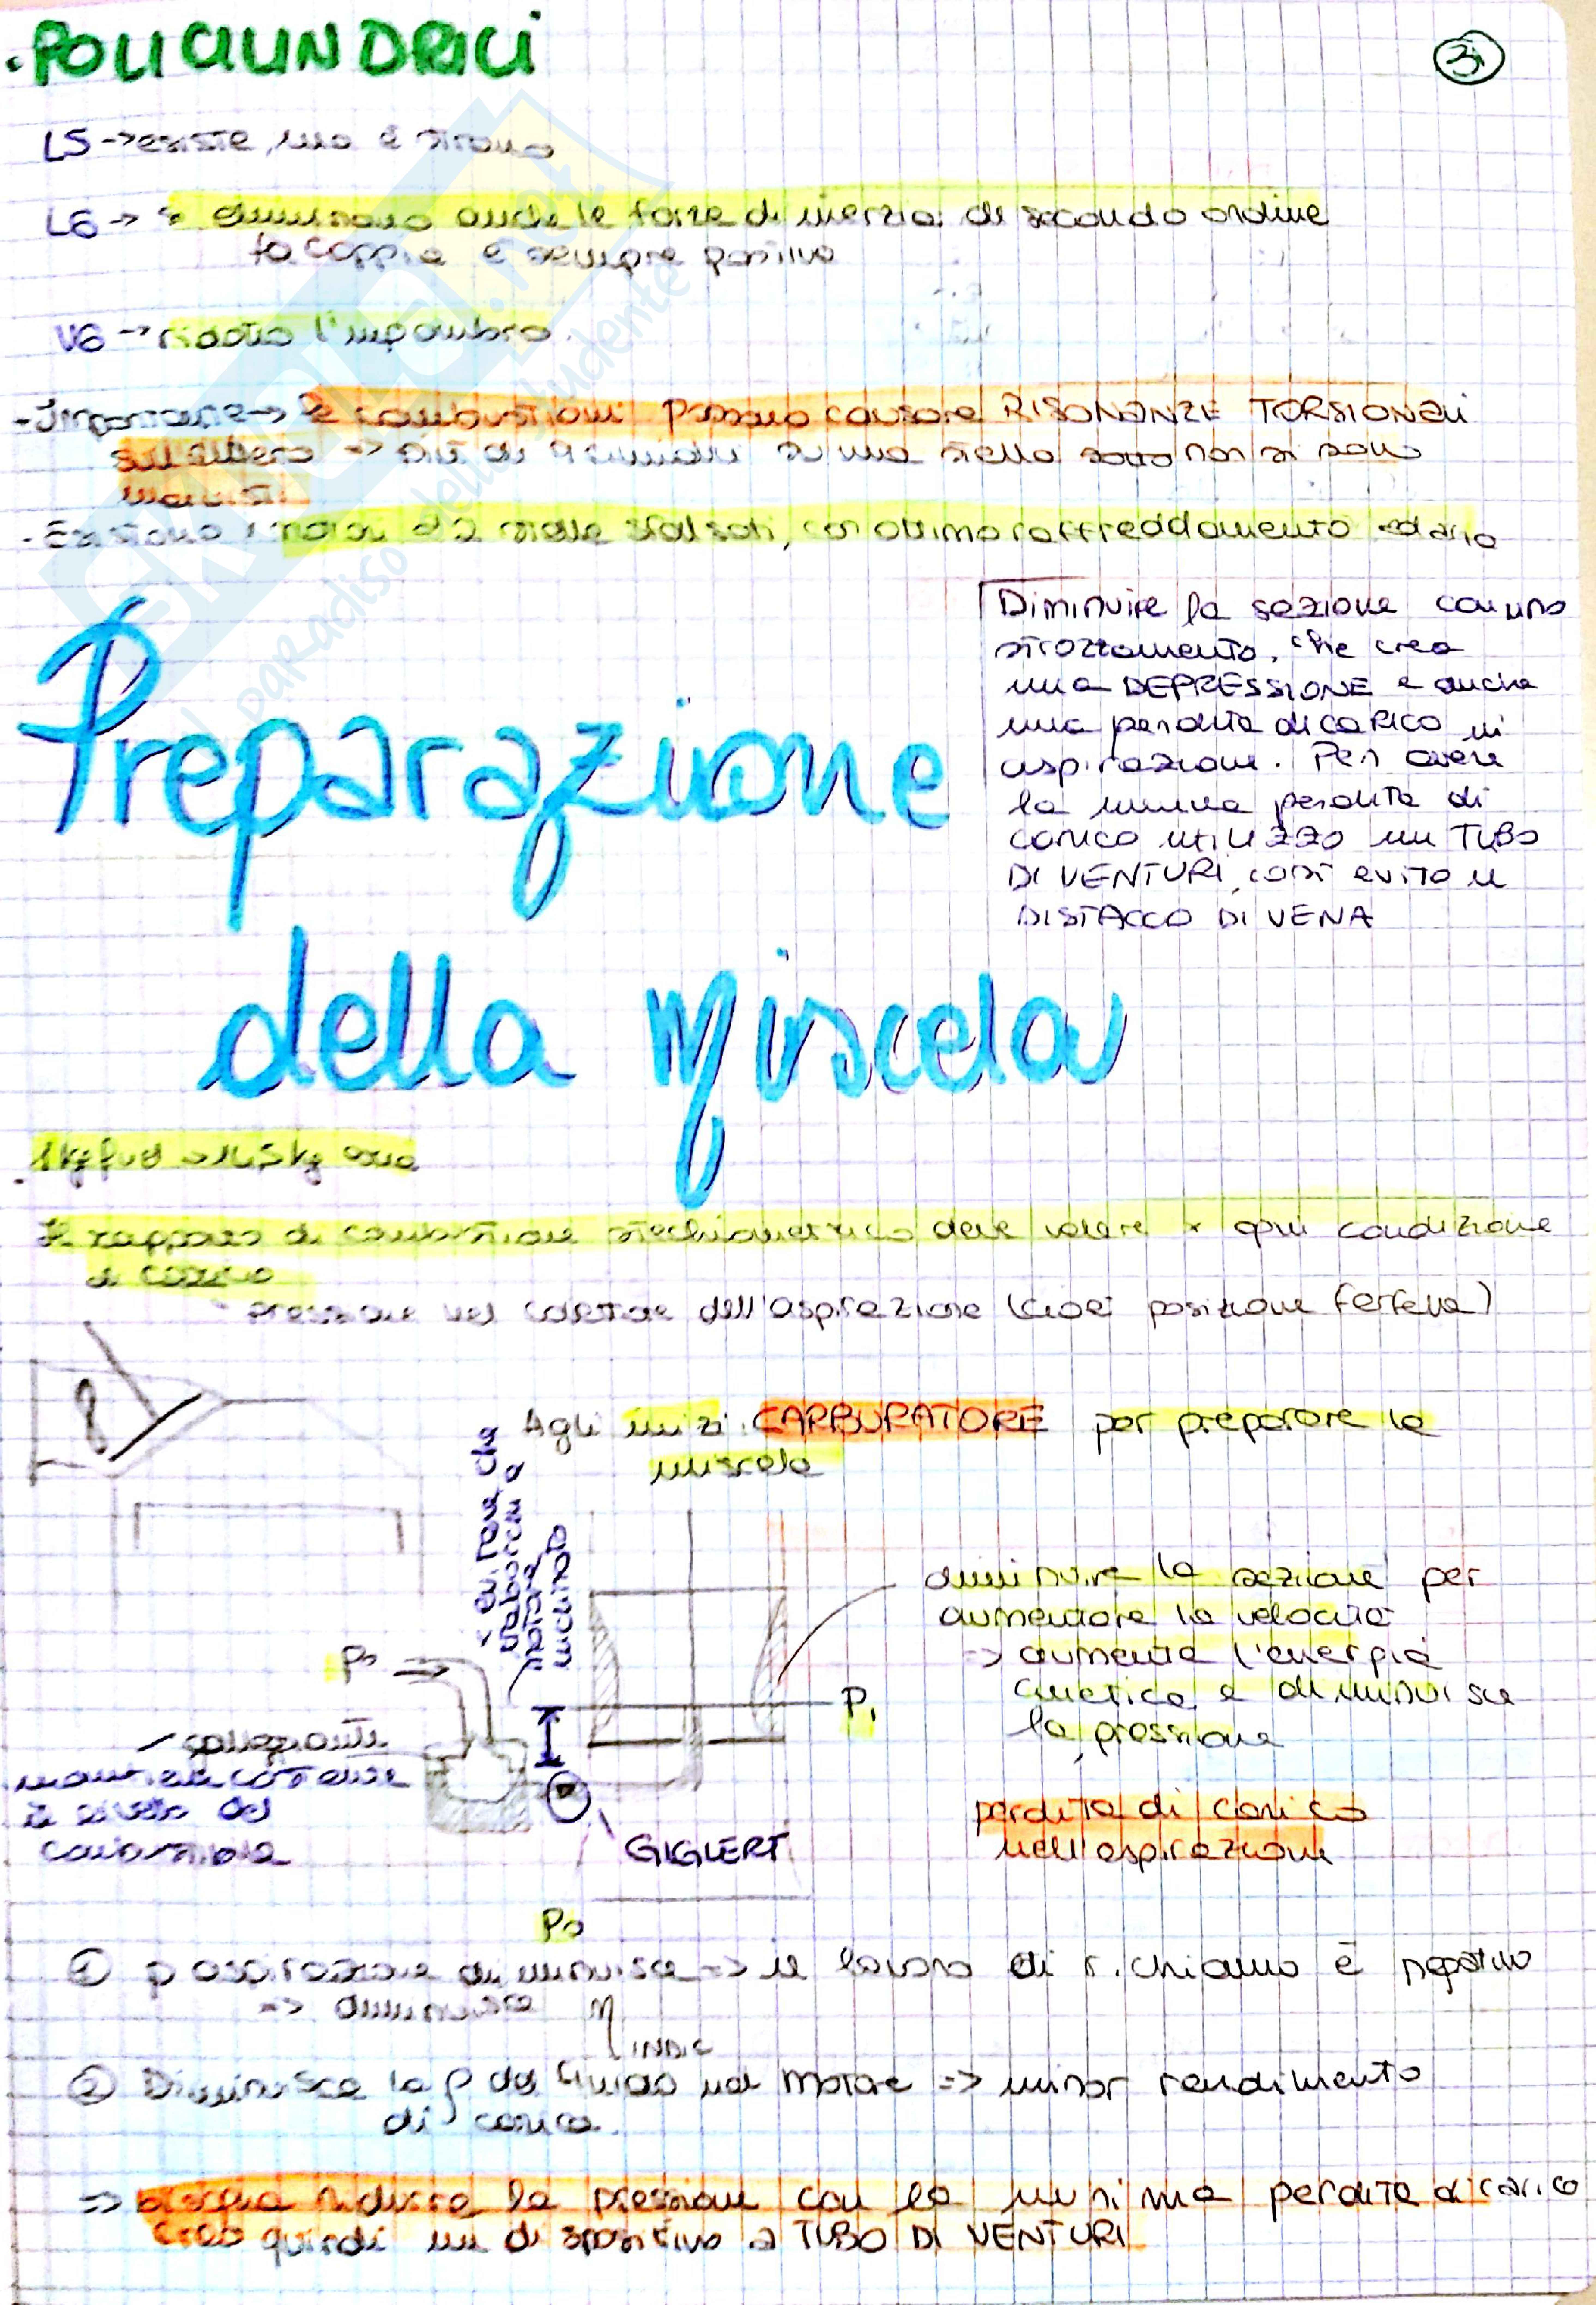 .POLICILINDRICI
3
L5 → esiste, ma è strano
L6 → si eliminano anche le forze di inerzia di secondo ordine
la coppia è sempre positiva
V6 → ridotto l'ingombro.
- Importante → le combustioni possono causare RISONANZE TORSIONALI
sull'albero => più di 9 cilindri su una stella sotto non si sono
mai visti
- Esistono i motori a 2 stelle sfalsati, con ottimo raffreddamento ad aria
Diminuire la sezione con uno
strozzamento, che crea
una DEPRESSIONE e anche
una perdita di CARICO in
aspirazione. Per avere
la minima perdita di
carico utilizzo un TUBO
DI VENTURI, così evito il
DISTACCO DI VENA
Preparazione
della Miscela
- 1 kg fuel → kg aria
Il rapporto di combustione stechiometrico deve valere x ogni condizione
di carico
pressione nel collettore dell'aspirazione (cioè posizione farfalla)
Agli inizi CARBURATORE per preparare la
miscela
evitare che
trabocchi a
motore
inclinato
diminuire la sezione per
aumentare la velocità
=> aumenta l'energia
cinetica e diminuisce
la pressione
P0
P1
galleggiante
mantiene costante
il livello del
combustibile
GIGLERT
perdita di carico
nell'aspirazione
P0
① p aspirazione diminuisce => il lavoro di richiamo è negativo
=> diminuisce η
INDIC
② Diminuisce la ρ del fluido nel motore => minor rendimento
di carica.
=> bisogna ridurre la pressione con la minima perdita di carico
Creo quindi un dispositivo a TUBO DI VENTURI